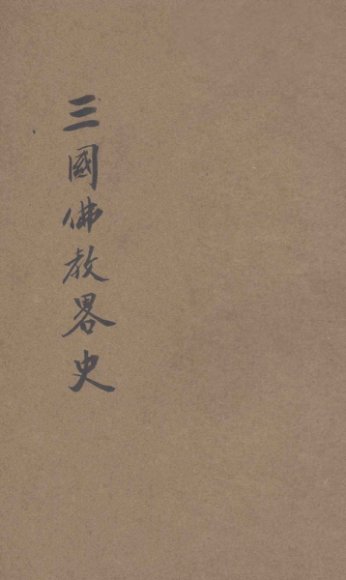 三國佛教畧史